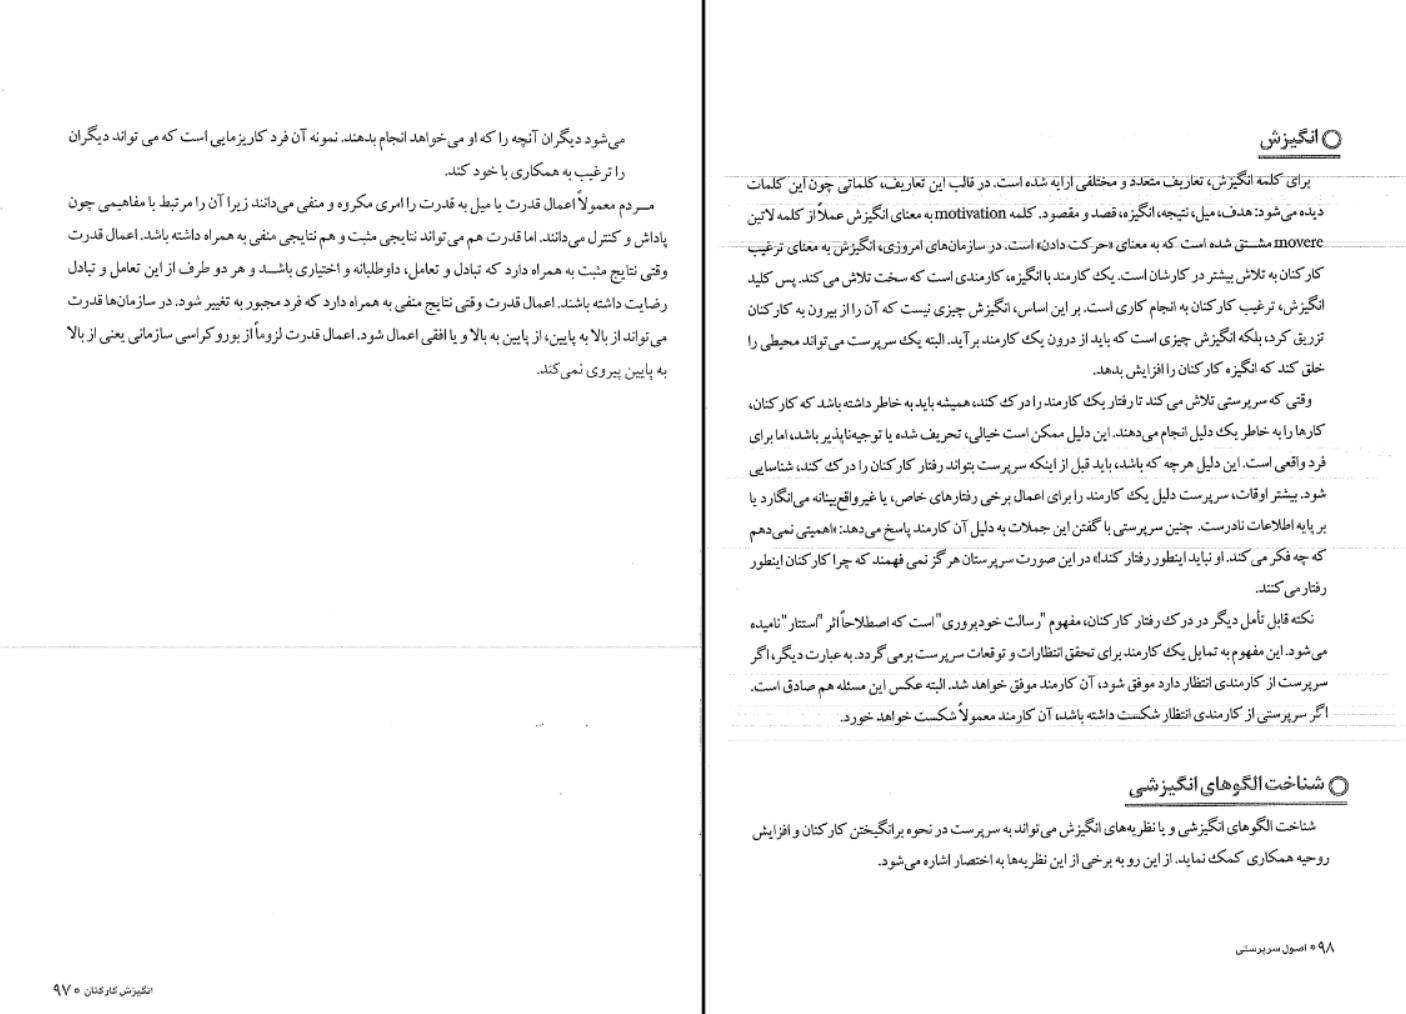 می‌شود دیگران آنچه را که او می‌خواهد انجام بدهند. نمونه آن فرد کاریزمایی است که می تواند دیگران
را ترغیب به همکاری با خود کند.
مردم معمولاً اعمال قدرت یا میل به قدرت را امری مکروه و منفی می‌دانند زیرا آن را مرتبط با مفاهیمی چون
پاداش و کنترل می‌دانند. اما قدرت هم می‌تواند نتایجی مثبت و هم نتایجی منفی به همراه داشته باشد. اعمال قدرت
وقتی نتایج مثبت به همراه دارد که تبادل و تعامل، داوطلبانه و اختیاری باشد و هر دو طرف از این تعامل و تبادل
رضایت داشته باشند. اعمال قدرت وقتی نتایج منفی به همراه دارد که فرد مجبور به تغییر شود. در سازمان‌ها قدرت
می‌تواند از بالا به پایین، از پایین به بالا و یا افقی اعمال شود. اعمال قدرت لزوماً از بوروکراسی سازمانی یعنی از بالا
به پایین پیروی نمی‌کند.
انگیزش کارکنان ○ ۹۷
○ انگیزش
برای کلمه انگیزش، تعاریف متعدد و مختلفی ارایه شده است. در قالب این تعاریف، کلماتی چون این کلمات
دیده می‌شود: هدف، میل، نتیجه، انگیزه، قصد و مقصود. کلمه motivation به معنای انگیزش عملاً از کلمه لاتین
movere مشتق شده است که به معنای «حرکت دادن» است. در سازمان‌های امروزی، انگیزش به معنای ترغیب
کارکنان به تلاش بیشتر در کارشان است. یک کارمند با انگیزه، کارمندی است که سخت تلاش می‌کند. پس کلید
انگیزش، ترغیب کارکنان به انجام کاری است. بر این اساس، انگیزش چیزی نیست که آن را از بیرون به کارکنان
تزریق کرد، بلکه انگیزش چیزی است که باید از درون یک کارمند برآید. البته یک سرپرست می‌تواند محیطی را
خلق کند که انگیزه کارکنان را افزایش بدهد.
وقتی که سرپرستی تلاش می‌کند تا رفتار یک کارمند را درک کند، همیشه باید به خاطر داشته باشد که کارکنان،
کارها را به خاطر یک دلیل انجام می‌دهند. این دلیل ممکن است خیالی، تحریف شده یا توجیه‌ناپذیر باشد، اما برای
فرد واقعی است. این دلیل هرچه که باشد، باید قبل از اینکه سرپرست بتواند رفتار کارکنان را درک کند، شناسایی
شود. بیشتر اوقات، سرپرست دلیل یک کارمند را برای اعمال برخی رفتارهای خاص، یا غیرواقع‌بینانه می‌انگارد یا
بر پایه اطلاعات نادرست. چنین سرپرستی با گفتن این جملات به دلیل آن کارمند پاسخ می‌دهد: «اهمیتی نمی‌دهم
که چه فکر می‌کند. او نباید اینطور رفتار کند!» در این صورت سرپرستان هرگز نمی فهمند که چرا کارکنان اینطور
رفتار می‌کنند.
نکته قابل تأمل دیگر در درک رفتار کارکنان، مفهوم "رسالت خودپروری" است که اصطلاحاً اثر "استتار" نامیده
می‌شود. این مفهوم به تمایل یک کارمند برای تحقق انتظارات و توقعات سرپرست برمی‌گردد. به عبارت دیگر، اگر
سرپرست از کارمندی انتظار دارد موفق شود، آن کارمند موفق خواهد شد. البته عکس این مسئله هم صادق است.
اگر سرپرستی از کارمندی انتظار شکست داشته باشد، آن کارمند معمولاً شکست خواهد خورد.
○ شناخت الگوهای انگیزشی
شناخت الگوهای انگیزشی و یا نظریه‌های انگیزش می‌تواند به سرپرست در نحوه برانگیختن کارکنان و افزایش
روحیه همکاری کمک نماید. از این رو به برخی از این نظریه‌ها به اختصار اشاره می‌شود.
۹۸ ○ اصول سرپرستی